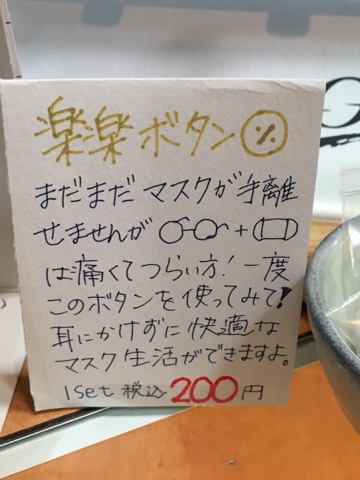 楽楽ボタン
まだまだマスクが手離
せませんが +
は痛くてつらい方!一度
このボタンを使ってみて!
耳にかけずに快適な
マスク生活ができますよ。
1set 税込200円